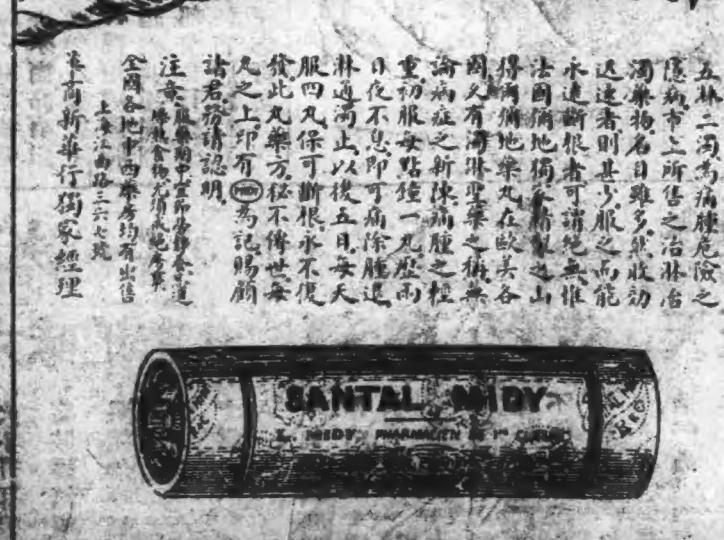 五淋二濁為痛腫危險之
隱病市上所售之治淋治
濁藥物名目雖多然收効
迅速者則甚少服之而能
永遠斷根者可謂絕無惟
法國彌地獨家精製之山
得爾彌地藥丸在歐美各
國久有濁淋聖藥之稱無
論病症之新陳痛腫之輕
重初服每點鐘一丸歷兩
日夜不息即可痛除腫退
淋通濁止以後五日每天
服四丸保可斷根永不復
發此丸藥方秘不傳世每
丸之上印有 MIDY 為記賜顧
諸君務請認明
注意 服藥期中宜節勞靜養
全國各地中西藥房均有出售
上海江西路三六七號
商新華行獨家經理
SANTAL MIDY
L. MIDY PHARMACIEN DE 1re CLASSE